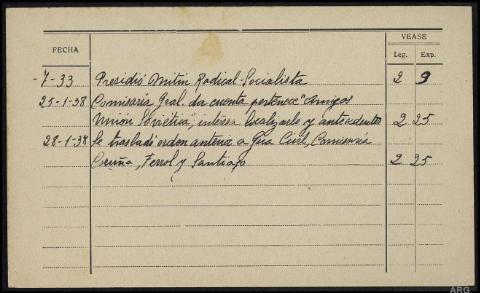 FECHA VEASE
Leg. Exp.
-7-33 Presidió mitin Radical-Socialista 2 9
25-1-38 Comisaría Gral. da cuenta pertenece "Amigos
Unión Soviética", interesa localizarlo y antecedentes 2 25
28-1-38 Se trasladó orden anterior a Gdia Civil, Comisaría
Coruña, Ferrol y Santiago 2 25
ARG